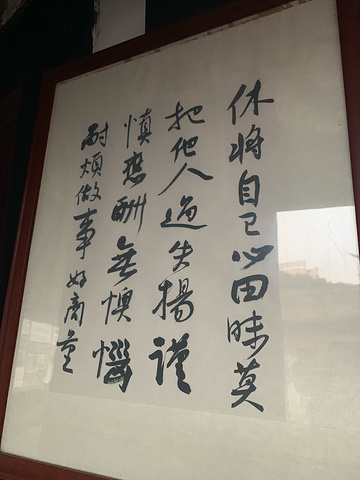 休將自己心田昧莫
把他人過失揚謹
慎應酬無懊惱
耐煩做事好商量